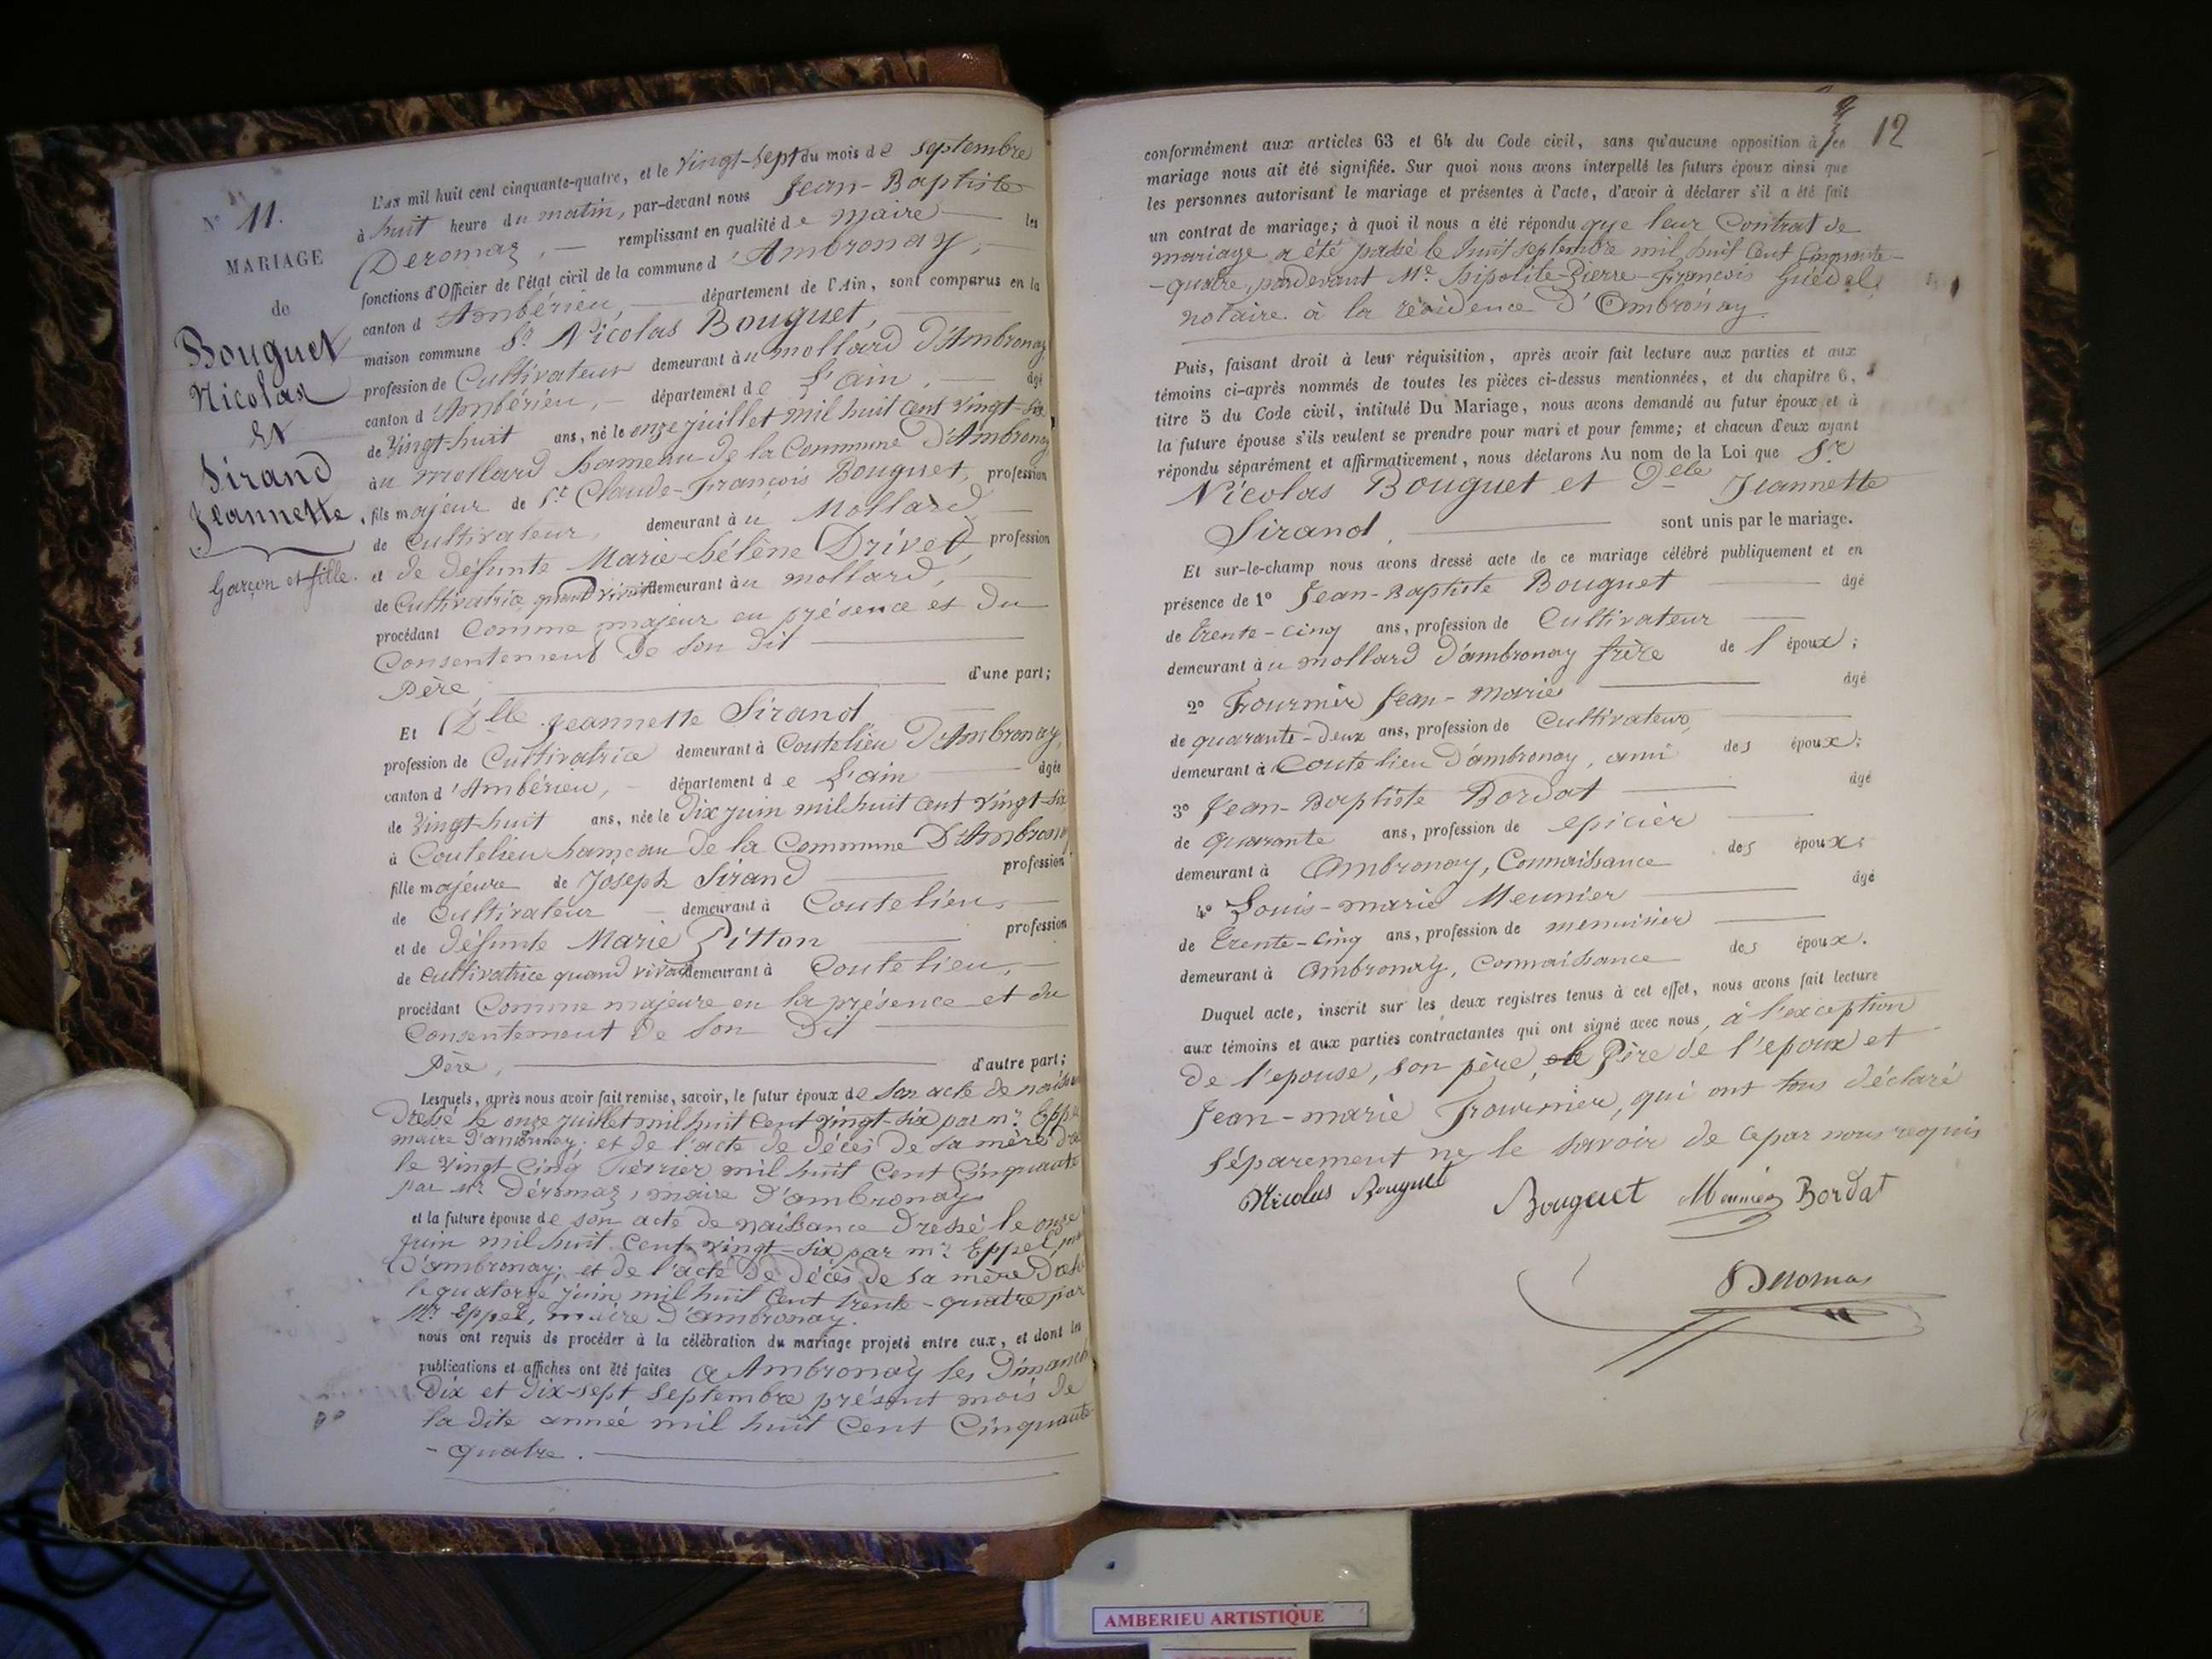 N° 11.
MARIAGE
de
Bouguet
Nicolas
Et
Sirand
Jeannette,
Garçon et fille.
L'an mil huit cent cinquante-quatre, et le vingt-sept du mois de septembre
à huit heure du matin, par-devant nous Jean-Baptiste
Deromaz, remplissant en qualité de maire les
fonctions d'Officier de l'état civil de la commune d'Ambronay,
canton d'Ambérieu, département de l'Ain, sont comparus en la
maison commune Sr Nicolas Bouguet,
profession de Cultivateur demeurant au mollard d'Ambronay
canton d'Ambérieu, département de L'ain, âgé
de Vingt-huit ans, né le onze juillet mil huit cent vingt-six
au mollard hameau de la Commune d'Ambronay
fils majeur de Sr Claude-François Bouguet, profession
de Cultivateur, demeurant au Mollard,
et de défunte Marie-hélène Drivet, profession
de Cultivatrice quand vivait demeurant au mollard,
procédant Comme majeur en présence et du
Consentement de son dit
Père, d'une part;
Et Dlle Jeannette Sirand
profession de Cultivatrice demeurant à Coutelieu d'Ambronay,
canton d'Ambérieu, département de L'ain âgée
de Vingt-huit ans, née le Dix juin mil huit cent vingt-six
à Coutelieu hameau de la Commune D'Ambronay
fille majeure de Joseph Sirand profession
de Cultivateur demeurant à Coutelieu,
et de défunte Marie Pitton profession
de Cultivatrice quand vivait demeurant à Coutelieu,
procédant Comme majeure en la présence et du
Consentement de son Dit
Père, d'autre part;
Lesquels, après nous avoir fait remise, savoir, le futur époux de son acte de
Dressé le onze juillet mil huit Cent vingt-six par mr
maire d'ambronay; et de l'acte de décès de sa mère
le vingt-cinq février mil huit Cent Cinquante
par mr Déromaz, maire d'ambronay
et la future épouse de son acte de naissance Dressé le onze
Juin mil huit Cent vingt-six par mr Eppel,
D'ambronay; et de l'acte de décès de sa mère
le quatorze juin mil huit Cent trente-quatre par
Mr Eppel, maire d'ambronay.
nous ont requis de procéder à la célébration du mariage projeté entre eux, et dont les
publications et affiches ont été faites a Ambronay les
Dix et Dix-sept Septembre présent mois de
la dite année mil huit Cent Cinquante
-quatre.
12
conformément aux articles 63 et 64 du Code civil, sans qu'aucune opposition à ce
mariage nous ait été signifiée. Sur quoi nous avons interpellé les futurs époux ainsi que
les personnes autorisant le mariage et présentes à l'acte, d'avoir à déclarer s'il a été fait
un contrat de mariage; à quoi il nous a été répondu que leur Contrat de
mariage a été passé le huit septembre mil huit Cent Cinquante-
-quatre, pardevant Me hipolite-Pierre-François
notaire à la résidence d'Ambronay.
Puis, faisant droit à leur réquisition, après avoir fait lecture aux parties et aux
témoins ci-après nommés de toutes les pièces ci-dessus mentionnées, et du chapitre 6,
titre 5 du Code civil, intitulé Du Mariage, nous avons demandé au futur époux et à
la future épouse s'ils veulent se prendre pour mari et pour femme; et chacun d'eux ayant
répondu séparément et affirmativement, nous déclarons Au nom de la Loi que Sr
Nicolas Bouguet et Delle Jeannette
Sirand. sont unis par le mariage.
Et sur-le-champ nous avons dressé acte de ce mariage célébré publiquement et en
présence de 1° Jean-Baptiste Bouguet âgé
de trente-cinq ans, profession de Cultivateur
demeurant au mollard d'ambronay frère de l'époux;
2° Fournier Jean-marie âgé
de quarante-deux ans, profession de Cultivateur,
demeurant à Coutelieu d'ambronay, ami des époux;
3° Jean-Baptiste Bordat âgé
de quarante ans, profession de epicier
demeurant à Ambronay, Connaissance des époux;
4° Louis-marie Meunier âgé
de trente-cinq ans, profession de menuisier
demeurant à Ambronay, Connaissance des époux.
Duquel acte, inscrit sur les deux registres tenus à cet effet, nous avons fait lecture
aux témoins et aux parties contractantes qui ont signé avec nous, à l'exception
de l'epouse, son père, le Père de l'epoux et
Jean-marie Fournier, qui ont tous déclaré
séparement ne le savoir de ce par nous requis
Nicolas Bouguet Bouguet Meunier Bordat
Deromas
AMBERIEU ARTISTIQUE